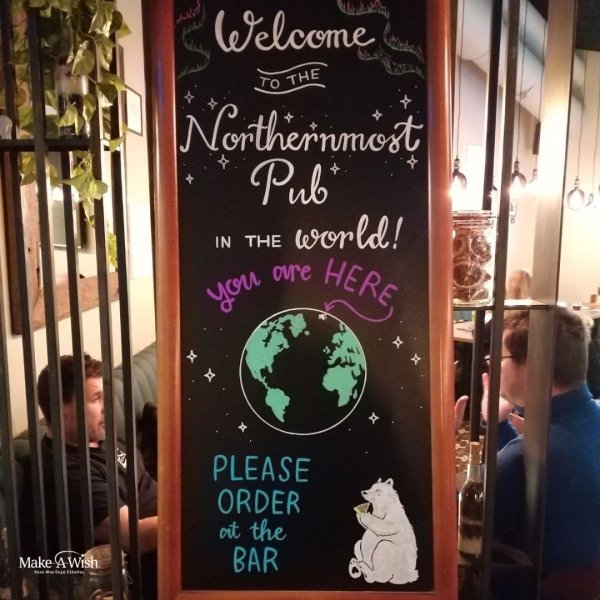 Welcome
TO THE
Northernmost
Pub
IN THE world!
you are HERE
PLEASE
ORDER
at the
BAR
Make-A-Wish.
Κάνε Μια Ευχή Ελλάδος